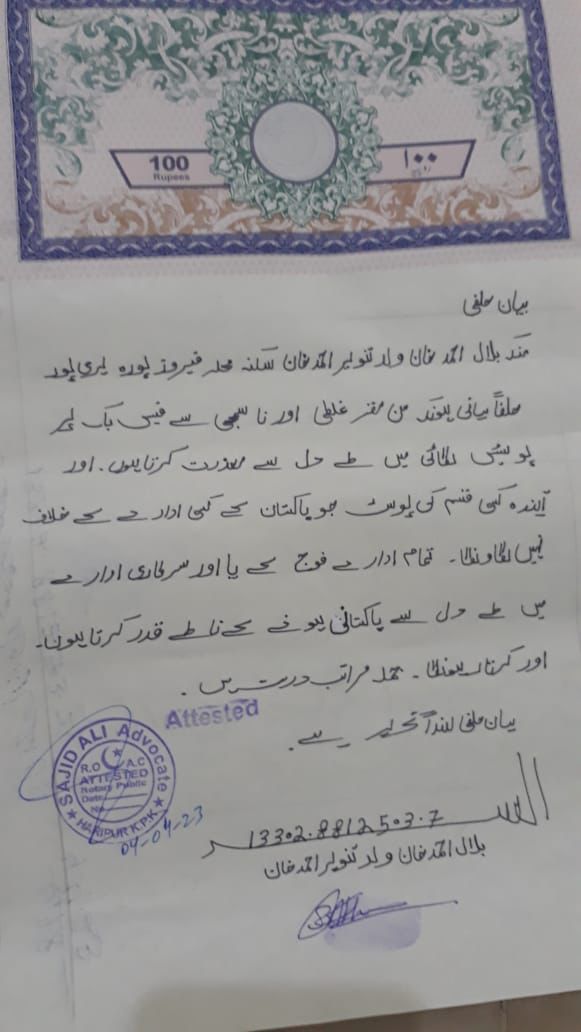 100
Rupees
۱۰۰
بیان حلفی
مند بلال احمد خان ولد تنویر احمد خان سکنہ محلہ فیروز پورہ ہری پور
حلفاً بیانی ہوند من مقر غلطی اور ناسمجھی سے فیس بک پر
پوسٹیں لگائی میں تے دل سے معذرت کرتا ہوں۔ اور
آیندہ کسی قسم کی پوسٹ جو پاکستان کے کسی ادارے کے خلاف
نہیں لگاونگا۔ تمام ادارے فوج کے یا اور سرکاری ادارے
میں تے دل سے پاکستانی ہونے کے ناطے قدر کرتا ہوں۔
اور کرتا رہونگا۔ جملہ مراتب درست ہیں۔
بیان حلفی لہذا تحریر ہے۔
Attested
SAJID ALI Advocate
R.O A.C
ATTESTED
Notary Public
Date
No
HARIPUR K.P.K
04-04-23
العبد
13302.8812503.7
بلال احمد خان ولد تنویر احمد خان